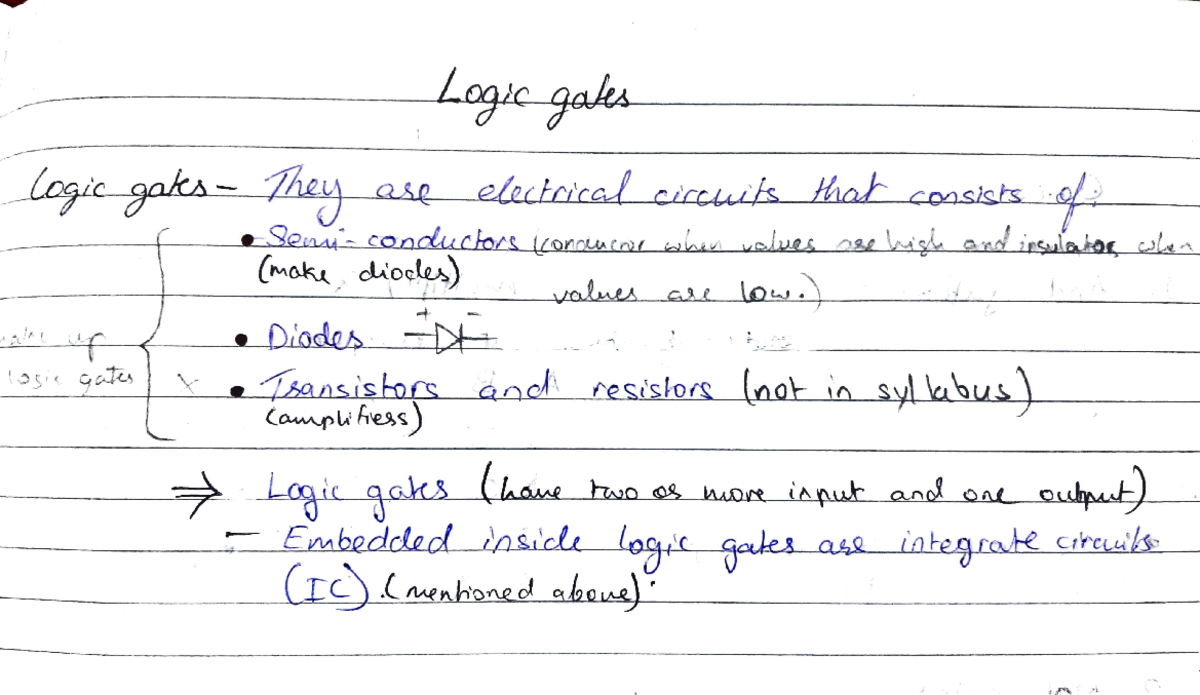 Logic gates
Logic gates - They are electrical circuits that consists of:
• Semi-conductors (conductor when values are high and insulator when
(make diodes) values are low.)
make up • Diodes + -
logic gates x • Transistors and resistors (not in syllabus)
(amplifiers)
⇒ Logic gates (have two or more input and one output)
- Embedded inside logic gates are integrate circuits
(IC). (mentioned above).